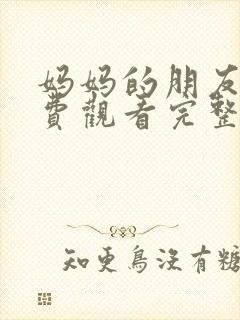 妈妈的朋友
费觀看完整
知更鳥沒有糖